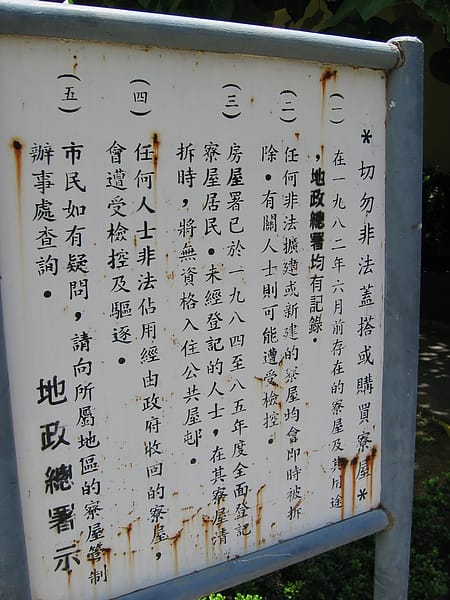 *切勿非法蓋搭或購買寮屋*
(一)
在一九八二年六月前存在的寮屋及其用途
，地政總署均有記錄。
(二)
任何非法擴建或新建的寮屋均會即時被拆
除。有關人士則可能遭受檢控。
(三)
房屋署已於一九八四至八五年度全面登記
寮屋居民。未經登記的人士，在其寮屋清
拆時，將無資格入住公共屋邨。
(四)
任何人士非法佔用經由政府收回的寮屋，
會遭受檢控及驅逐。
(五)
市民如有疑問，請向所屬地區的寮屋管制
辦事處查詢。
地政總署示